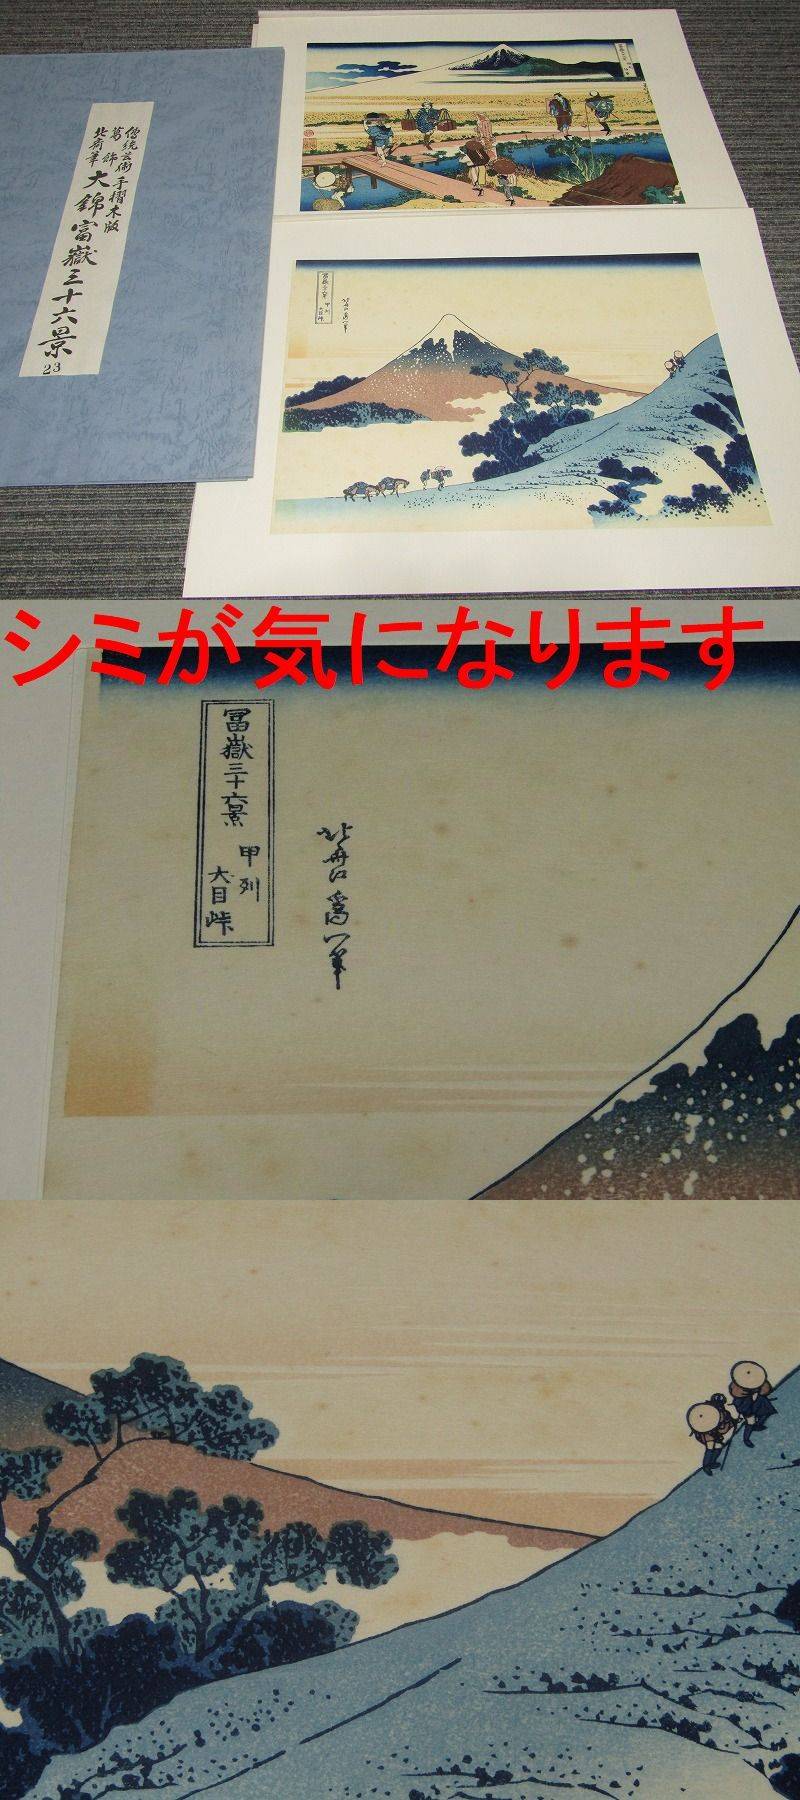 傳統芸術 手摺木版
葛飾
北斎筆 大錦 富嶽三十六景
23
シミが気になります
冨嶽三十六景 甲列
犬目峠
北斎爲一筆